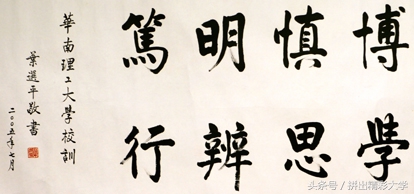 博學
慎思
明辨
篤行
華南理工大學校訓
葉選平敬書
二〇〇五年七月
头条号/拱出精彩大学